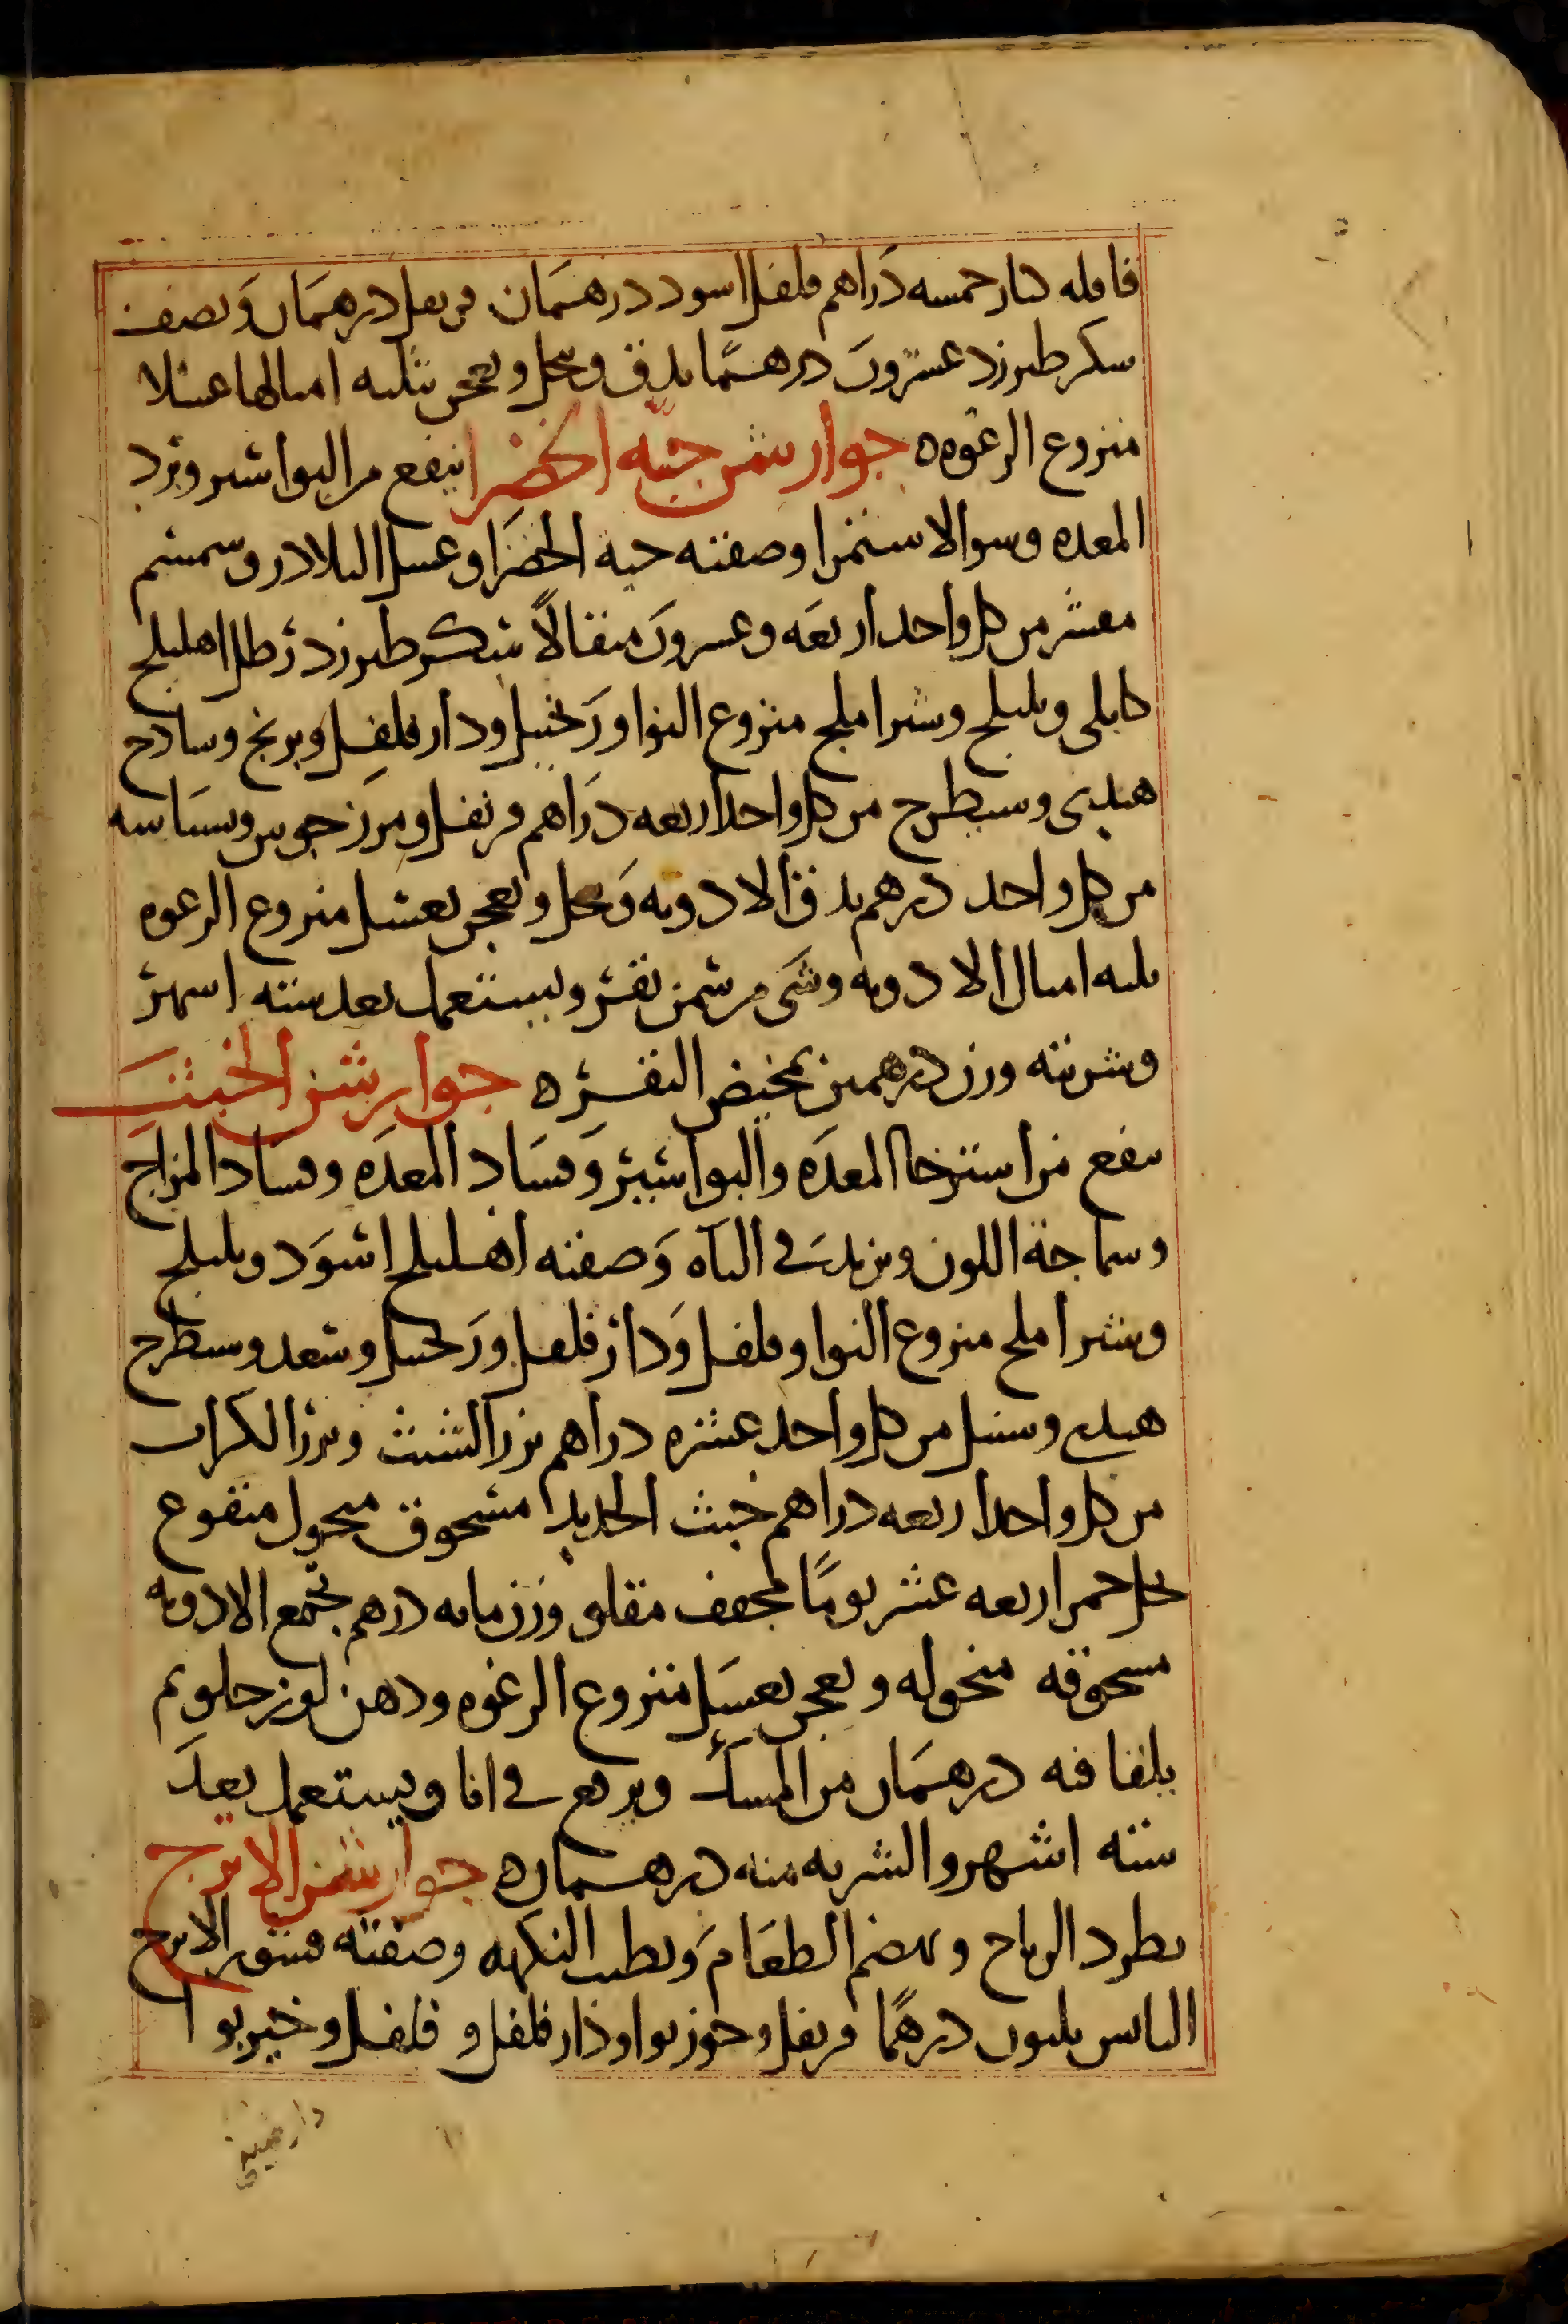 قاقله كبار خمسه دَراهم فلفل اسود درهمَان قرنفل درهمَان وَنصف
سكر طبرزد عشرونَ درهمًا يدق وينخل ويعجن بثلثه امثالها عسلا
منزوع الرغوه ه جوارشن حبّه الخضرا ينفع من البواسير وبرد
المعده وسو الاستمرا وصفته حبه الخضرَا وعسل البلادر وسمسم
مقشر من كل واحد اربعَه وعشرونَ مثقالاً سكر طبرزد رطل اهليلج
كابلى وبليلج وشير املج منزوع النوا وزَنجبيل ودار فلفل وبرنج وسادج
هندى وسيطرج من كل واحد اربعه درَاهم قرنفل ومرزجوس وبسبَاسه
من كل واحد درهم يدق الادويه وَينخل ويعجن بعسل منزوع الرغوه
ثلثه امثال الادويه وشَى من سمن بقر ويستعمل بعد سته اسهر
وشربته وزن درهمين بمخيض البقر ه جوارشن الخبث
ينفع من استرخا المعدَه والبواسير وَفسَاد المعدَه وفسَاد المزاج
وسماجة اللون ويزيدَ في البَاه وَصفته اهليلج اسوَد وبليلج
وشير املج منزوع النوا وفلفل وَدار فلفل وزَنجبيل وسعد وسيطرج
هندى وسنبل من كل واحد عشره دراهم بزر الشبث وبزر الكراث
من كل واحد اربعه دراهم خبث الحديد مسحوق منخول منقوع
بخل خمر اربعه عشر يومًا مجفف مقلو وزن مايه درهم تجمع الادويه
مسحوقه منخوله ويعجن بعسَل منزوع الرغوه ودهن لوز حلو ثم
يلقا فيه درهمَان من المسك ويرفع في انا ويستعمل بعدَ
سته اشهر والشربه منه درهمان ه جوارشن الاترج
يطرد الرياح ويهضم الطعَام وَيطيب النكهه وصفته قشور الاترج
اليابس ثلثون درهمًا قرنفل وجوزبوا ودار فلفل وفلفل وخيربوا
دارصيني